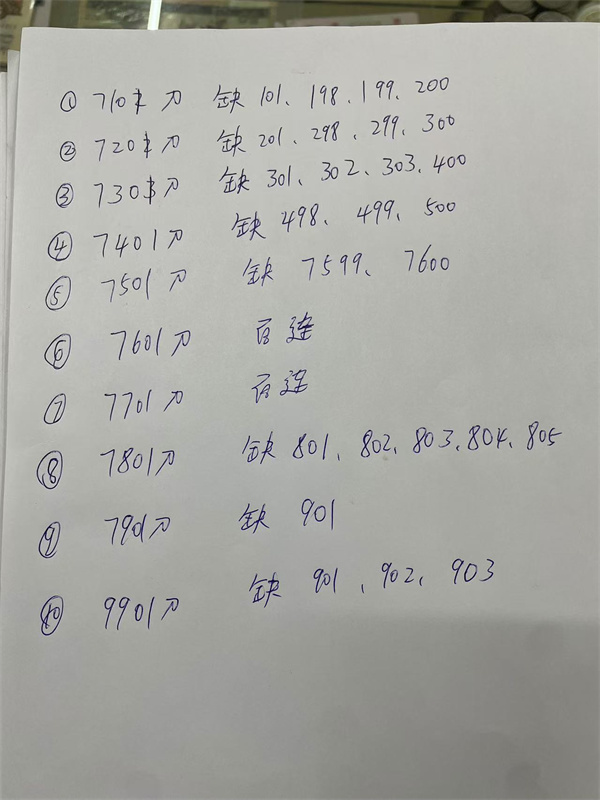 ① 7101刀 缺 101、198、199、200
② 7201刀 缺 201、298、299、300
③ 7301刀 缺 301、302、303、400
④ 7401刀 缺 498、499、500
⑤ 7501刀 缺 7599、7600
⑥ 7601刀 百连
⑦ 7701刀 百连
⑧ 7801刀 缺 801、802、803、804、805
⑨ 7901刀 缺 901
⑩ 9901刀 缺 901、902、903